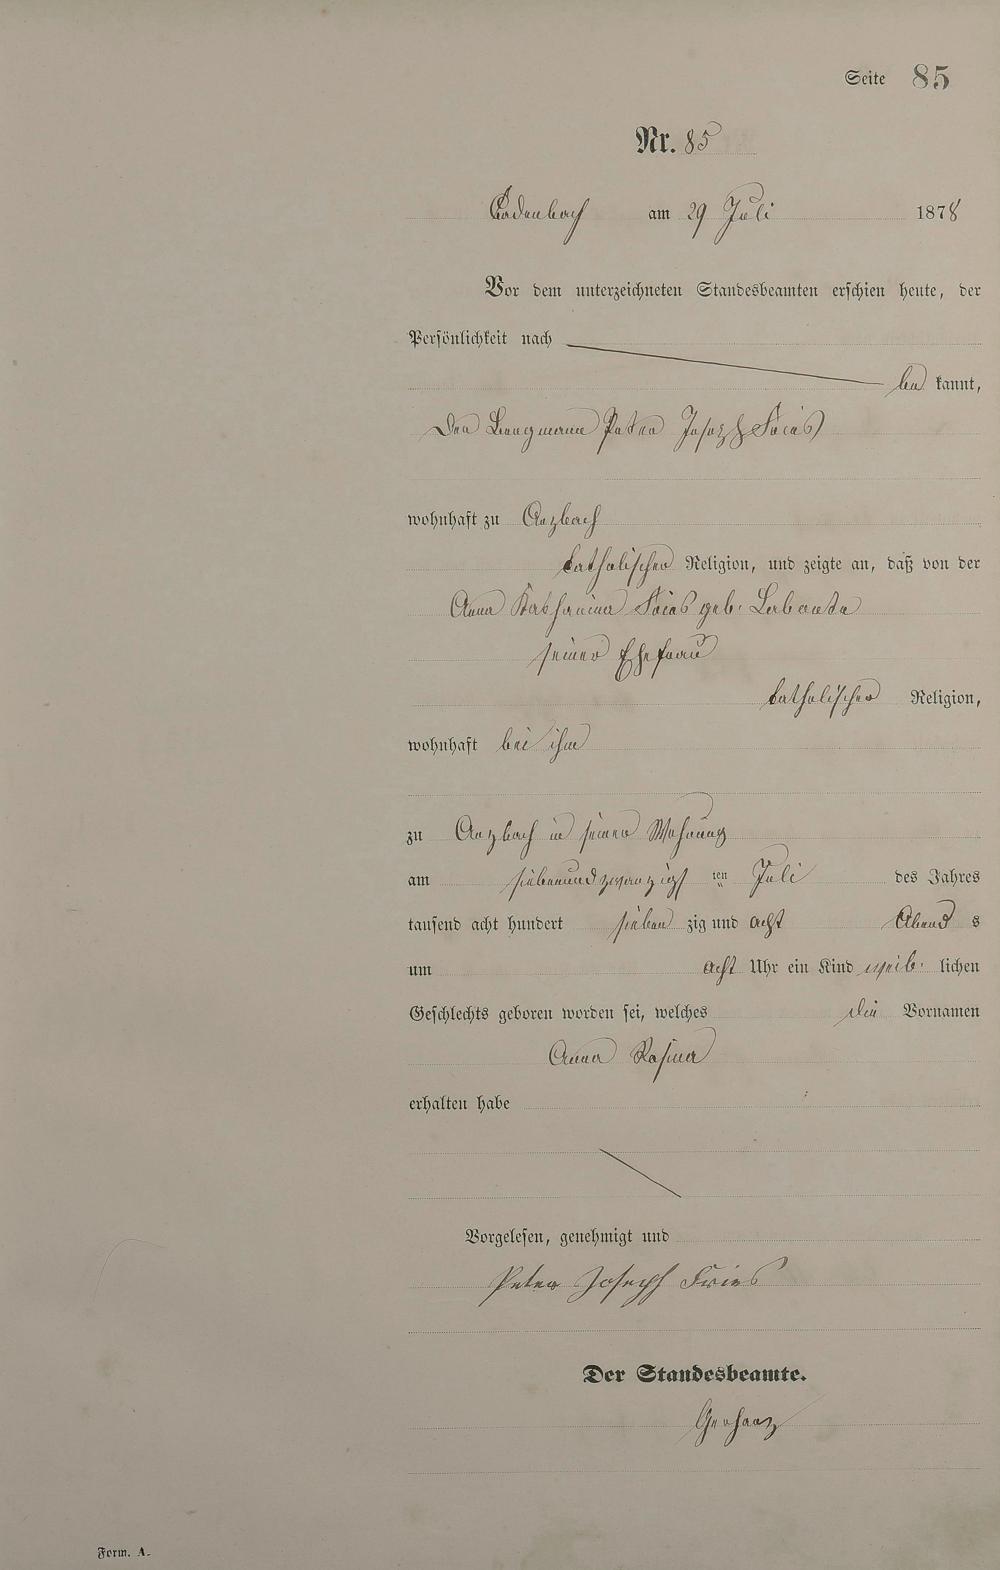 Seite 85
Nr. 85
Cadenbach am 29 Juli 1878
Vor dem unterzeichneten Standesbeamten erschien heute, der
Persönlichkeit nach
be kannt,
Der Bergmann Peter Joseph Fries
wohnhaft zu Arzbach
katholischer Religion, und zeigte an, daß von der
Anna Katharina Fries geb.
seiner Ehefrau
katholischer Religion,
wohnhaft bei ihm
zu Arzbach in seiner Wohnung
am siebenundzwanzigs ten Juli des Jahres
tausend acht hundert sieben zig und acht Abend s
um acht Uhr ein Kind weib. lichen
Geschlechts geboren worden sei, welches die Vornamen
Anna Rosina
erhalten habe
Vorgelesen, genehmigt und
Peter Joseph Fries
Der Standesbeamte.
Gerharz
Form. A.